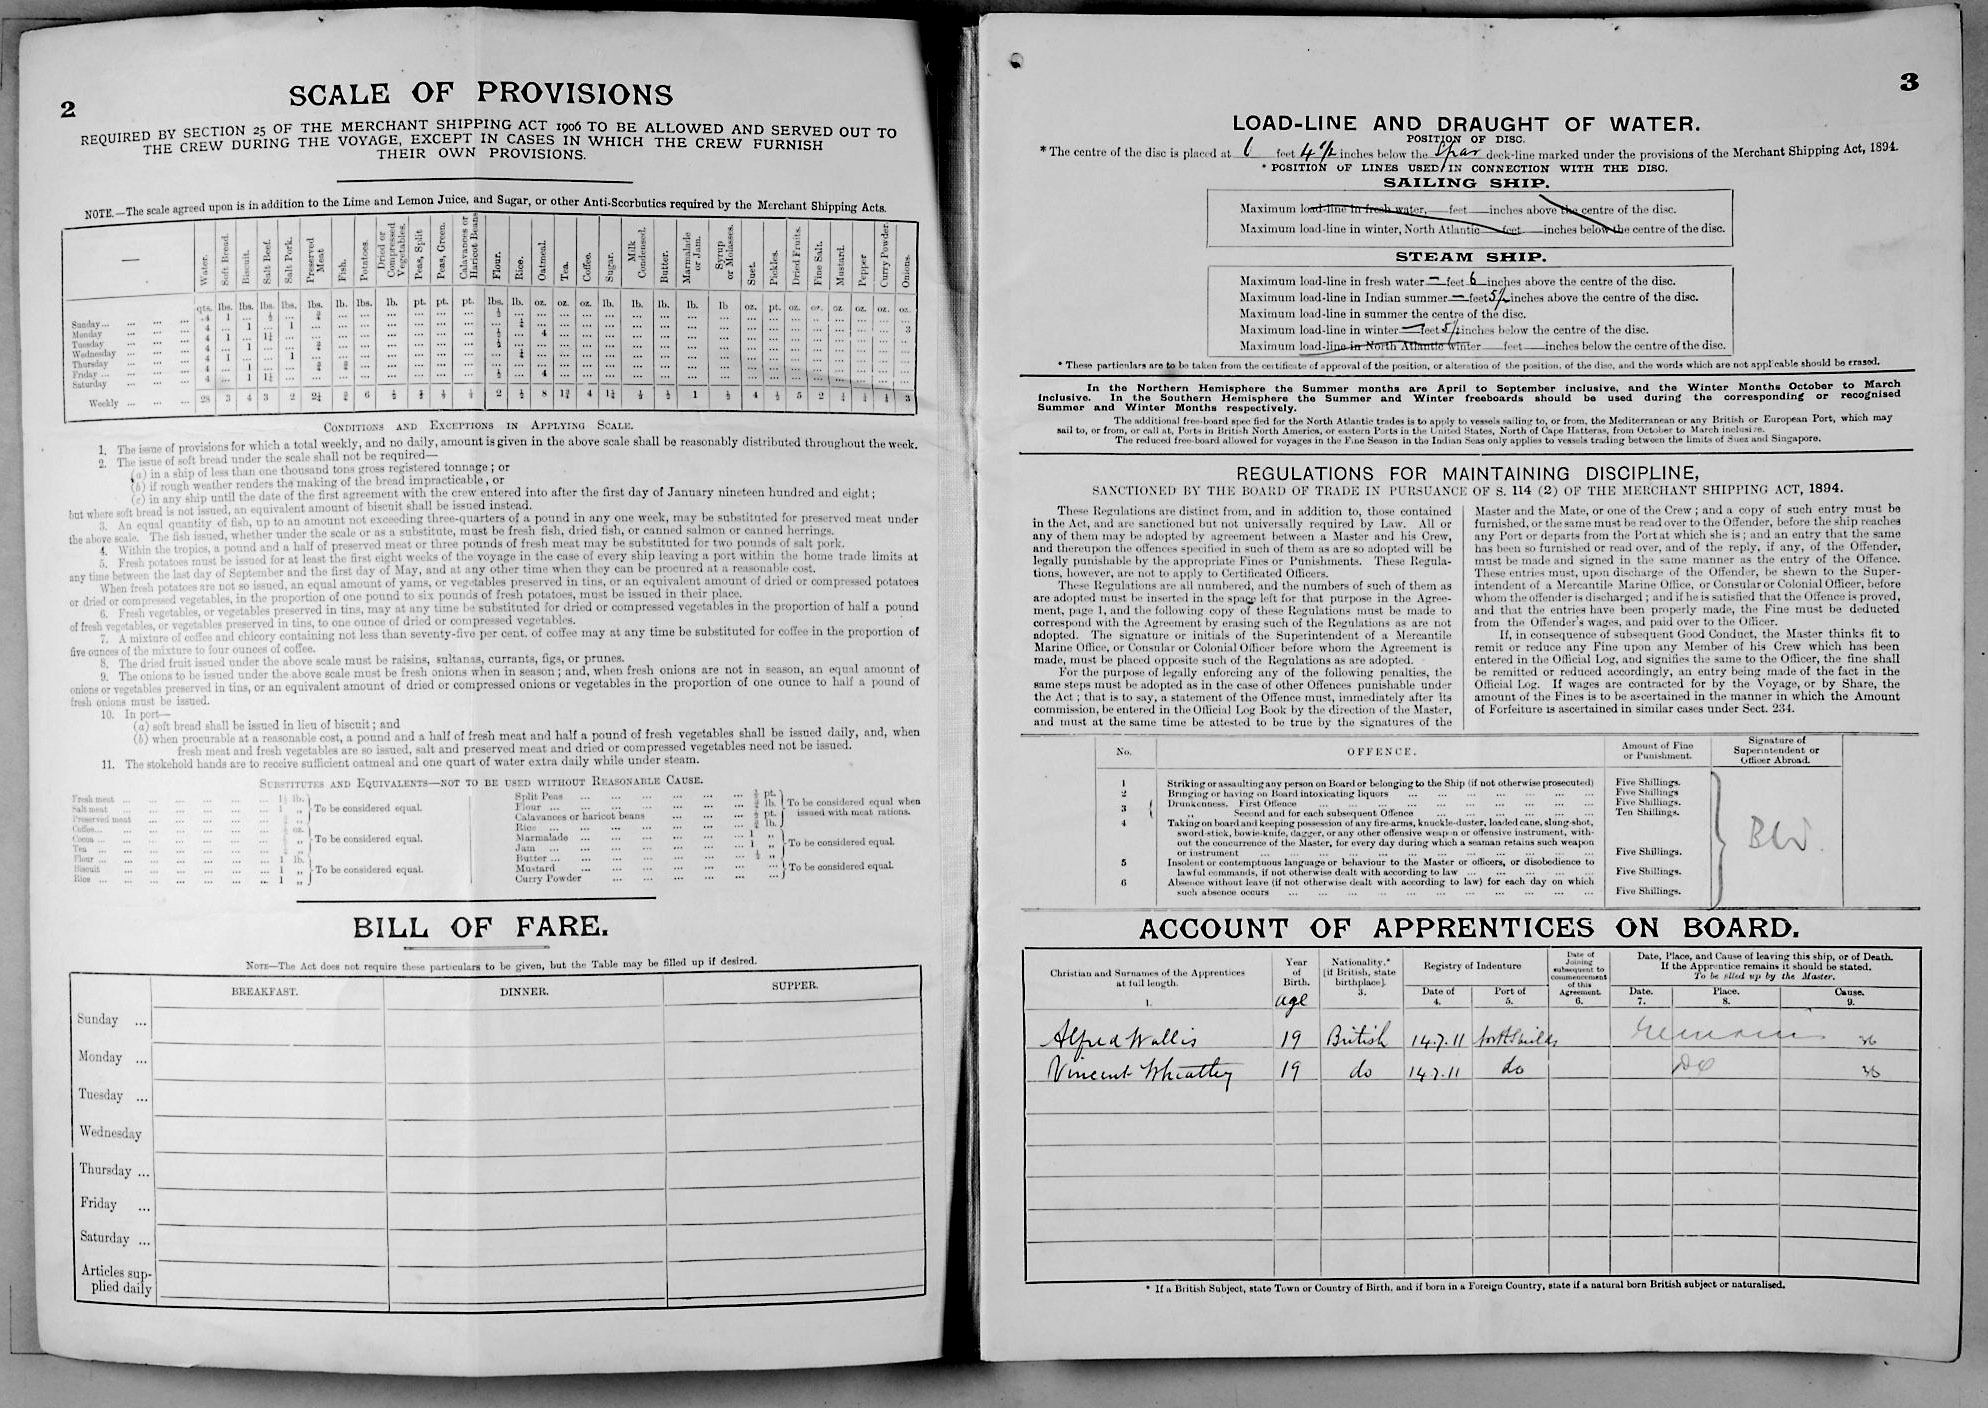 2
SCALE OF PROVISIONS
REQUIRED BY SECTION 25 OF THE MERCHANT SHIPPING ACT 1906 TO BE ALLOWED AND SERVED OUT TO
THE CREW DURING THE VOYAGE, EXCEPT IN CASES IN WHICH THE CREW FURNISH
THEIR OWN PROVISIONS.
NOTE.—The scale agreed upon is in addition to the Lime and Lemon Juice, and Sugar, or other Anti-Scorbutics required by the Merchant Shipping Acts.
— Water. Soft Bread. Biscuit. Salt Beef. Salt Pork. Preserved Meat Fish. Potatoes. Dried or Compressed Vegetables. Peas, Split Peas, Green. Calavances or Haricot Beans Flour. Rice. Oatmeal. Tea. Coffee. Sugar. Milk Condensed. Butter. Marmalade or Jam. Syrup or Molasses. Suet. Pickles. Dried Fruits. Fine Salt. Mustard. Pepper Curry Powder. Onions.
qts. lbs. lbs. lbs. lbs. lbs. lb. lbs. lb. pt. pt. pt. lbs. lb. oz. oz. oz. lb. lb. lb. lb. lb oz. pt. oz. oz. oz. oz. oz. oz.
Sunday... ... ... ...
Monday ... ... ...
Tuesday ... ... ...
Wednesday ... ... ...
Thursday ... ... ...
Friday ... ... ... ...
Saturday ... ... ...
Weekly ... ... ... 28 3 4 3 2 2¼ ¾ 6 ½ ⅔ ⅓ ⅓ 2 ½ 8 1¾ 4 1¼ ⅓ ½ 1 ½ 4 ½ 5 2 ¼ ¼ ¼ 3
CONDITIONS AND EXCEPTIONS IN APPLYING SCALE.
1. The issue of provisions for which a total weekly, and no daily, amount is given in the above scale shall be reasonably distributed throughout the week.
2. The issue of soft bread under the scale shall not be required—
(a) in a ship of less than one thousand tons gross registered tonnage; or
(b) if rough weather renders the making of the bread impracticable, or
(c) in any ship until the date of the first agreement with the crew entered into after the first day of January nineteen hundred and eight;
but where soft bread is not issued, an equivalent amount of biscuit shall be issued instead.
3. An equal quantity of fish, up to an amount not exceeding three-quarters of a pound in any one week, may be substituted for preserved meat under
the above scale. The fish issued, whether under the scale or as a substitute, must be fresh fish, dried fish, or canned salmon or canned herrings.
4. Within the tropics, a pound and a half of preserved meat or three pounds of fresh meat may be substituted for two pounds of salt pork.
5. Fresh potatoes must be issued for at least the first eight weeks of the voyage in the case of every ship leaving a port within the home trade limits at
any time between the last day of September and the first day of May, and at any other time when they can be procured at a reasonable cost.
When fresh potatoes are not so issued, an equal amount of yams, or vegetables preserved in tins, or an equivalent amount of dried or compressed potatoes
or dried or compressed vegetables, in the proportion of one pound to six pounds of fresh potatoes, must be issued in their place.
6. Fresh vegetables, or vegetables preserved in tins, may at any time be substituted for dried or compressed vegetables in the proportion of half a pound
of fresh vegetables, or vegetables preserved in tins, to one ounce of dried or compressed vegetables.
7. A mixture of coffee and chicory containing not less than seventy-five per cent. of coffee may at any time be substituted for coffee in the proportion of
five ounces of the mixture to four ounces of coffee.
8. The dried fruit issued under the above scale must be raisins, sultanas, currants, figs, or prunes.
9. The onions to be issued under the above scale must be fresh onions when in season; and, when fresh onions are not in season, an equal amount of
onions or vegetables preserved in tins, or an equivalent amount of dried or compressed onions or vegetables in the proportion of one ounce to half a pound of
fresh onions must be issued.
10. In port—
(a) soft bread shall be issued in lieu of biscuit; and
(b) when procurable at a reasonable cost, a pound and a half of fresh meat and half a pound of fresh vegetables shall be issued daily, and, when
fresh meat and fresh vegetables are so issued, salt and preserved meat and dried or compressed vegetables need not be issued.
11. The stokehold hands are to receive sufficient oatmeal and one quart of water extra daily while under steam.
SUBSTITUTES AND EQUIVALENTS—NOT TO BE USED WITHOUT REASONABLE CAUSE.
Fresh meat ... 1½ lb.
Salt meat ... 1 „ To be considered equal.
Preserved meat ... ¾ „
Coffee... ... ½ oz.
Cocoa ... ... „ To be considered equal.
Tea ... ... „
Flour ... ... 1 lb.
Biscuit ... 1 „ To be considered equal.
Rice ... ... 1 „
Split Peas ... pt.
Flour ... ... lb. To be considered equal when
Calavances or haricot beans ... pt. issued with meat rations.
Rice ... ... lb.
Marmalade ... 1 „
Jam ... ... 1 „ To be considered equal.
Butter ... ... ½ „
Mustard ... ... To be considered equal.
Curry Powder ...
BILL OF FARE.
NOTE—The Act does not require these particulars to be given, but the Table may be filled up if desired.
BREAKFAST. DINNER. SUPPER.
Sunday ...
Monday ...
Tuesday ...
Wednesday
Thursday ...
Friday ...
Saturday ...
Articles sup-
plied daily
3
LOAD-LINE AND DRAUGHT OF WATER.
POSITION OF DISC.
* The centre of the disc is placed at 1 feet 4½ inches below the Spar deck-line marked under the provisions of the Merchant Shipping Act, 1894.
* POSITION OF LINES USED IN CONNECTION WITH THE DISC.
SAILING SHIP.
Maximum load-line in fresh water, feet inches above the centre of the disc.
Maximum load-line in winter, North Atlantic feet inches below the centre of the disc.
STEAM SHIP.
Maximum load-line in fresh water — feet 6 inches above the centre of the disc.
Maximum load-line in Indian summer — feet 5½ inches above the centre of the disc.
Maximum load-line in summer the centre of the disc.
Maximum load-line in winter — feet 5½ inches below the centre of the disc.
Maximum load-line in North Atlantic winter feet inches below the centre of the disc.
* These particulars are to be taken from the certificate of approval of the position, or alteration of the position, of the disc, and the words which are not applicable should be erased.
In the Northern Hemisphere the Summer months are April to September inclusive, and the Winter Months October to March
inclusive. In the Southern Hemisphere the Summer and Winter freeboards should be used during the corresponding or recognised
Summer and Winter Months respectively.
The additional free-board specified for the North Atlantic trades is to apply to vessels sailing to, or from, the Mediterranean or any British or European Port, which may
sail to, or from, or call at, Ports in British North America, or eastern Ports in the United States, North of Cape Hatteras, from October to March inclusive.
The reduced free-board allowed for voyages in the Fine Season in the Indian Seas only applies to vessels trading between the limits of Suez and Singapore.
REGULATIONS FOR MAINTAINING DISCIPLINE,
SANCTIONED BY THE BOARD OF TRADE IN PURSUANCE OF S. 114 (2) OF THE MERCHANT SHIPPING ACT, 1894.
These Regulations are distinct from, and in addition to, those contained
in the Act, and are sanctioned but not universally required by Law. All or
any of them may be adopted by agreement between a Master and his Crew,
and thereupon the offences specified in such of them as are so adopted will be
legally punishable by the appropriate Fines or Punishments. These Regula-
tions, however, are not to apply to Certificated Officers.
These Regulations are all numbered, and the numbers of such of them as
are adopted must be inserted in the space left for that purpose in the Agree-
ment, page 1, and the following copy of these Regulations must be made to
correspond with the Agreement by erasing such of the Regulations as are not
adopted. The signature or initials of the Superintendent of a Mercantile
Marine Office, or Consular or Colonial Officer before whom the Agreement is
made, must be placed opposite such of the Regulations as are adopted.
For the purpose of legally enforcing any of the following penalties, the
same steps must be adopted as in the case of other Offences punishable under
the Act; that is to say, a statement of the Offence must, immediately after its
commission, be entered in the Official Log Book by the direction of the Master,
and must at the same time be attested to be true by the signatures of the
Master and the Mate, or one of the Crew; and a copy of such entry must be
furnished, or the same must be read over to the Offender, before the ship reaches
any Port or departs from the Port at which she is; and an entry that the same
has been so furnished or read over, and of the reply, if any, of the Offender,
must be made and signed in the same manner as the entry of the Offence.
These entries must, upon discharge of the Offender, be shewn to the Super-
intendent of a Mercantile Marine Office, or Consular or Colonial Officer, before
whom the offender is discharged; and if he is satisfied that the Offence is proved,
and that the entries have been properly made, the Fine must be deducted
from the Offender's wages, and paid over to the Officer.
If, in consequence of subsequent Good Conduct, the Master thinks fit to
remit or reduce any Fine upon any Member of his Crew which has been
entered in the Official Log, and signifies the same to the Officer, the fine shall
be remitted or reduced accordingly, an entry being made of the fact in the
Official Log. If wages are contracted for by the Voyage, or by Share, the
amount of the Fines is to be ascertained in the manner in which the Amount
of Forfeiture is ascertained in similar cases under Sect. 234.
No. OFFENCE. Amount of Fine or Punishment. Signature of Superintendent or Officer Abroad.
1 Striking or assaulting any person on Board or belonging to the Ship (if not otherwise prosecuted) Five Shillings.
2 Bringing or having on Board intoxicating liquors ... Five Shillings
3 Drunkenness. First Offence ... Five Shillings.
„ Second and for each subsequent Offence ... Ten Shillings.
4 Taking on board and keeping possession of any fire-arms, knuckle-duster, loaded cane, slung-shot,
sword-stick, bowie-knife, dagger, or any other offensive weapon or offensive instrument, with-
out the concurrence of the Master, for every day during which a seaman retains such weapon
or instrument ... Five Shillings.
5 Insolent or contemptuous language or behaviour to the Master or officers, or disobedience to
lawful commands, if not otherwise dealt with according to law ... Five Shillings.
6 Absence without leave (if not otherwise dealt with according to law) for each day on which
such absence occurs ... Five Shillings.
ACCOUNT OF APPRENTICES ON BOARD.
Christian and Surnames of the Apprentices at full length. 1.
Year of Birth. age
Nationality.* [if British, state birthplace]. 3.
Registry of Indenture
Date of 4. Port of 5.
Date of Joining subsequent to commencement of this Agreement. 6.
Date, Place, and Cause of leaving this ship, or of Death.
If the Apprentice remains it should be stated.
To be filled up by the Master.
Date. 7. Place. 8. Cause. 9.
Alfred Wallis 19 British 14.7.11 North Shields Remains
Vincent Wheatley 19 do 14.7.11 do Do
* If a British Subject, state Town or Country of Birth, and if born in a Foreign Country, state if a natural born British subject or naturalised.